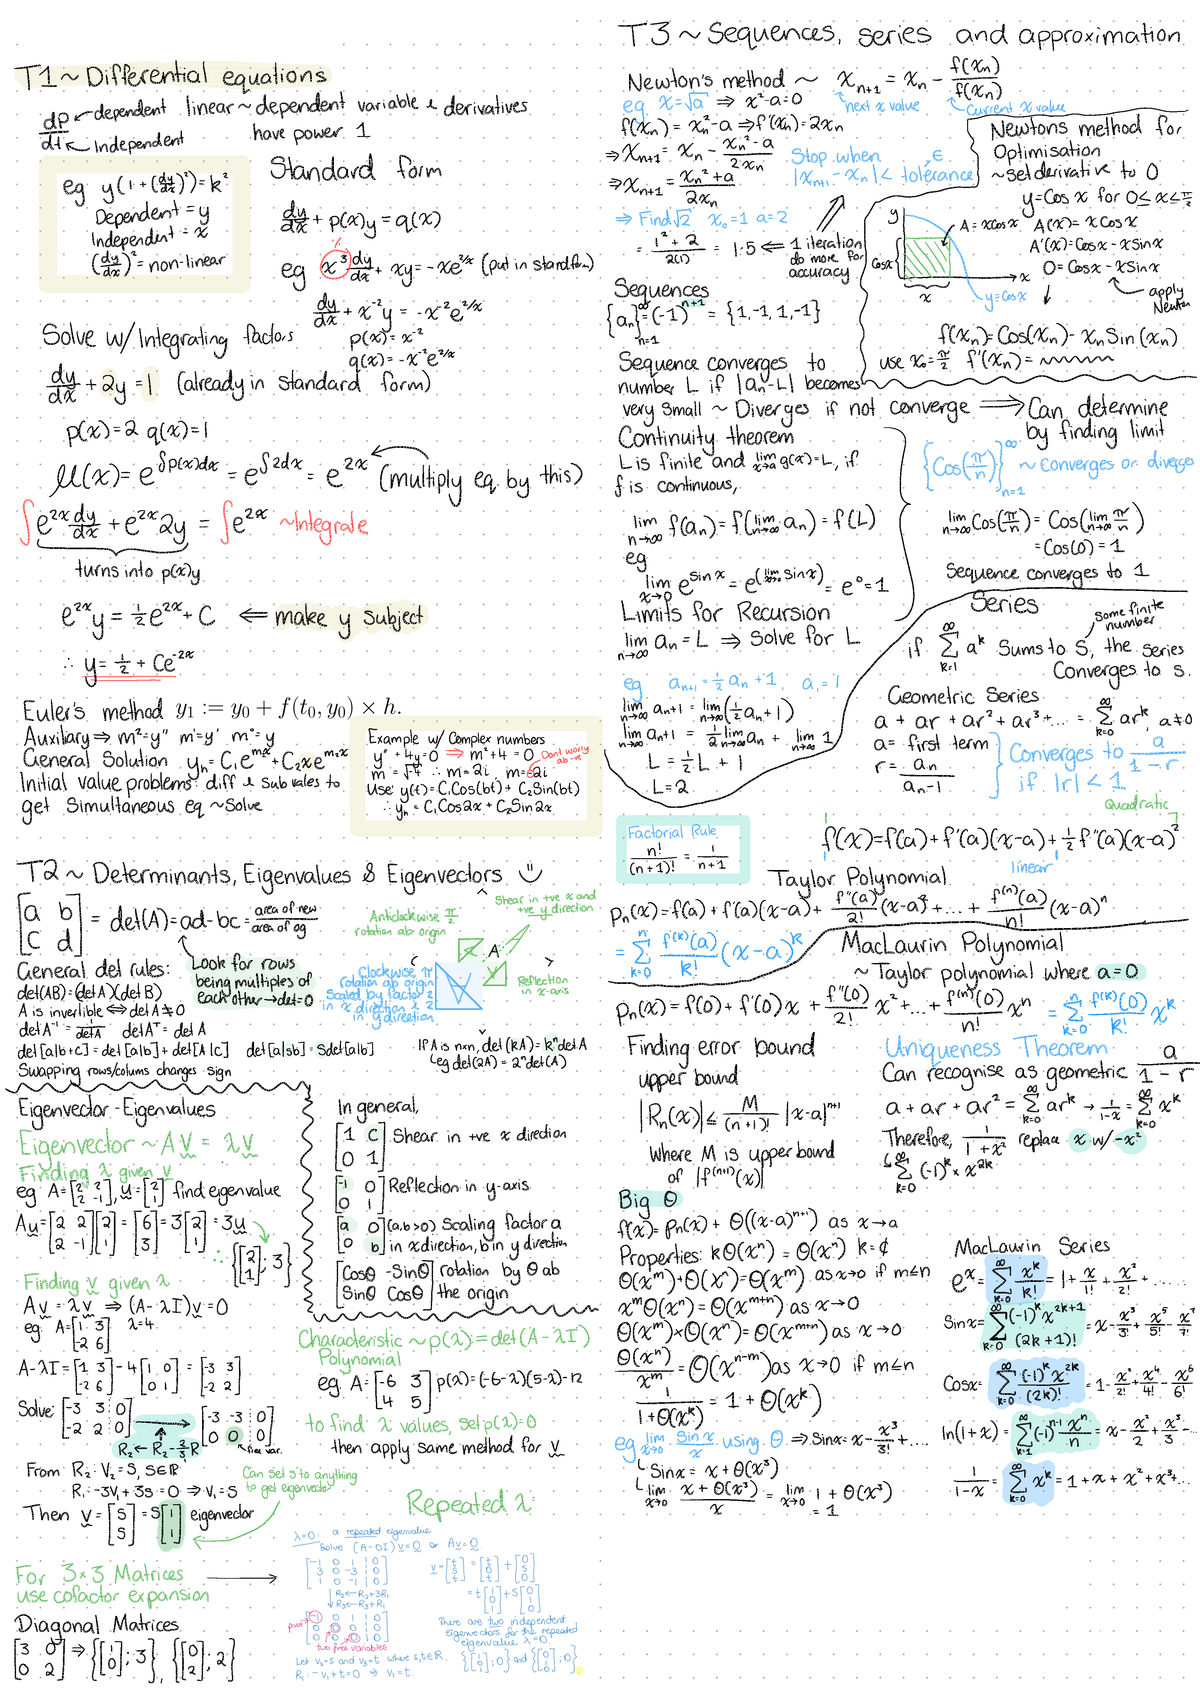 T1 ~ Differential equations
dP/dt ← dependent
← Independent
linear ~ dependent variable & derivatives have power 1
eg y(1+(dy/dx)²)=k²
Dependent = y
Independent = x
(dy/dx)² = non-linear
Standard form
dy/dx + p(x)y = q(x)
eg x³ dy/dx + xy = -xe^(2/x) (put in stand form)
dy/dx + x⁻²y = -x⁻²e^(2/x)
p(x) = x⁻²
q(x) = -x⁻²e^(2/x)
Solve w/ Integrating factors
dy/dx + 2y = 1 (already in standard form)
p(x)=2 q(x)=1
μ(x) = e^(∫p(x)dx) = e^(∫2dx) = e^(2x) (multiply eq. by this)
∫e^(2x) dy/dx + e^(2x) 2y = ∫e^(2x) ~Integrate
turns into p(x)y
e^(2x)y = ½e^(2x) + C ⇐ make y subject
∴ y = ½ + Ce^(-2x)
Euler's method y₁ := y₀ + f(t₀, y₀) × h.
Auxiliary ⇒ m²=y'' m=y' m°=y
General Solution yₕ = C₁e^(m₁x) + C₂xe^(m₂x)
Initial value problems: diff & sub vales to
get Simultaneous eq ~Solve
Example w/ Complex numbers
y'' + 4y = 0 ⇒ m²+4 = 0
Dont worry ab -ve
m = √-4 ∴ m=2i, m=-2i
Use y(t) = C₁Cos(bt) + C₂Sin(bt)
∴ yₕ = C₁Cos2x + C₂Sin2x
T2 ~ Determinants, Eigenvalues & Eigenvectors
[a b; c d] = det(A) = ad-bc = area of new / area of og
General det rules:
det(AB) = (detA)(detB)
A is invertible ⇔ detA ≠ 0
detA⁻¹ = 1/detA detAᵀ = detA
det[a|b+c] = det[a|b] + det[A|c] det[a|sb] = Sdet[a|b]
Swapping rows/colums changes sign
Look for rows
being multiples of
each other → det=0
Anticlockwise π/2
rotation ab origin
Shear in +ve x and
+ve y direction
A
Reflection
in x-axis
Clockwise π
rotation ab origin
Scaled by factor 2
in x direction & 2
in y direction
If A is n×n, det(kA) = kⁿdetA
eg det(2A) = 2ⁿdet(A)
Eigenvector - Eigenvalues
Eigenvector ~ Av = λv
Finding λ given v
eg A=[2 2; 2 -1], u=[2; 1] find eigenvalue
Au = [2 2; 2 -1][2; 1] = [6; 3] = 3[2; 1] = 3u
∴ {[2; 1]; 3}
Finding v given λ
Av = λv ⇒ (A-λI)v = 0
eg A=[1 3; -2 6] λ=4
A-λI = [1 3; -2 6] - 4[1 0; 0 1] = [-3 3; -2 2]
Solve: [-3 3 : 0; -2 2 : 0] → [-3 -3 : 0; 0 0 : 0]
free var.
R₂ ← R₂ - ⅔R
From R₂: V₂=S, S∈ℝ
R₁: -3V₁ + 3S = 0 ⇒ V₁=S
Then v = [S; S] = S[1; 1] eigenvector
Can set s to anything
to get eigenvector
For 3×3 Matrices
use cofactor expansion
Diagonal Matrices
[3 0; 0 2] ⇒ {[1; 0]; 3}, {[0; 2]; 2}
In general,
[1 C; 0 1] Shear in +ve x direction
[-1 0; 0 1] Reflection in y-axis
[a 0; 0 b] (a,b>0) Scaling factor a
in x direction, b in y direction
[Cosθ -Sinθ; Sinθ Cosθ] rotation by θ ab
the origin
Characteristic ~ p(λ) = det(A-λI)
Polynomial
eg A=[-6 3; 4 5] p(λ)=(-6-λ)(5-λ)-12
to find λ values, set p(λ)=0
then apply same method for v
Repeated λ:
λ=0: a repeated eigenvalue
Solve (A-0I)v=0 or Av=0
[-1 0 1 | 0; 3 0 -3 | 0; 1 0 -1 | 0]
R₂←R₂+3R₁
R₃←R₃+R₁
pivot
[-1 0 1 | 0; 0 0 0 | 0; 0 0 0 | 0]
two free variables
Let v₂=s and v₃=t where s,t∈ℝ.
R₁: -v₁+t=0 ⇒ v₁=t.
v=[t; s; t] = [t; 0; t] + [0; s; 0]
= t[1; 0; 1] + s[0; 1; 0]
There are two independent
eigenvectors for the repeated
eigenvalue λ=0
{[1; 0; 1]; 0} and {[0; 1; 0]; 0}
T3 ~ Sequences, series and approximation
Newton's method ~ xₙ₊₁ = xₙ - f(xₙ)/f(xₙ)
next x value
Current x value
eg x=√a ⇒ x²-a=0
f(xₙ) = xₙ²-a ⇒ f'(xₙ) = 2xₙ
⇒ xₙ₊₁ = xₙ - (xₙ²-a)/2xₙ
⇒ xₙ₊₁ = (xₙ²+a)/2xₙ
Stop when
|xₙ₊₁ - xₙ| < tolerance ε
⇒ Find √2 x₀=1 a=2
= (1²+2)/2(1) = 1.5 ⇐ 1 iteration
do more for
accuracy
Newtons method for
Optimisation
~ set derivative to 0
y=Cos x for 0≤x≤π/2
A=xCosx A(x)=xCosx
A'(x)=Cosx-xSinx
0=Cosx-xSinx
apply Newton
y
Cosx
x
x
y=Cosx
f(xₙ) = Cos(xₙ) - xₙSin(xₙ)
use x₀=π/2 f'(xₙ) =
Sequences
{aₙ}^∞ₙ₌₁ = (-1)ⁿ⁺¹ = {1,-1,1,-1}
Sequence converges to
number L if |aₙ-L| becomes
very small ~ Diverges if not converge ⇒ Can determine
by finding limit
Continuity theorem
L is finite and lim x→a g(x)=L, if
f is continuous,
lim n→∞ f(aₙ) = f(lim n→∞ aₙ) = f(L)
eg
lim x→0 e^(sinx) = e^(lim x→0 sinx) = e⁰ = 1
{Cos(π/n)}^∞ₙ₌₁ ~ converges or diverges
lim n→∞ Cos(π/n) = Cos(lim n→∞ π/n)
=Cos(0)=1
Sequence converges to 1
Limits for Recursion
lim n→∞ aₙ = L ⇒ Solve for L
eg aₙ₊₁ = ½aₙ+1, a₁=1
lim n→∞ aₙ₊₁ = lim n→∞ (½aₙ+1)
lim n→∞ aₙ₊₁ = ½ lim n→∞ aₙ + lim n→∞ 1
L = ½L + 1
L=2
Series
some finite
number
if Σ^∞ₖ₌₁ aᵏ Sums to S, the series
Converges to s.
Geometric Series
a + ar + ar² + ar³ + ... = Σ^∞ₖ₌₀ arᵏ, a≠0
a = first term
r = aₙ/aₙ₋₁
Converges to a/(1-r)
if |r|<1
Factorial Rule
n!/(n+1)! = 1/(n+1)
Quadratic
f(x)=f(a)+f'(a)(x-a)+½f''(a)(x-a)²
linear
Taylor Polynomial
pₙ(x)=f(a)+f'(a)(x-a)+f''(a)/2!(x-a)²+...+f⁽ⁿ⁾(a)/n!(x-a)ⁿ
= Σⁿₖ₌₀ f⁽ᵏ⁾(a)/k! (x-a)ᵏ
MacLaurin Polynomial
~ Taylor polynomial where a=0
pₙ(x)=f(0)+f'(0)x+f''(0)/2! x²+...+f⁽ⁿ⁾(0)/n! xⁿ = Σⁿₖ₌₀ f⁽ᵏ⁾(0)/k! xᵏ
Finding error bound
upper bound
|Rₙ(x)| ≤ M/(n+1)! |x-a|ⁿ⁺¹
where M is upper bound
of |f⁽ⁿ⁺¹⁾(x)|
Uniqueness Theorem
Can recognise as geometric a/(1-r)
a+ar+ar² = Σ^∞ₖ₌₀ arᵏ → 1/(1-x) = Σ^∞ₖ₌₀ xᵏ
Therefore, 1/(1+x²) replace x w/ -x²
Σ^∞ₖ₌₀ (-1)ᵏ × x²ᵏ
Big Θ
f(x) = pₙ(x) + Θ((x-a)ⁿ⁺¹) as x→a
Properties: kΘ(xⁿ) = Θ(xⁿ) k=¢
Θ(xᵐ)+Θ(xⁿ)=Θ(xᵐ) as x→0 if m≤n
xᵐΘ(xⁿ)=Θ(xᵐ⁺ⁿ) as x→0
Θ(xᵐ)×Θ(xⁿ)=Θ(xᵐ⁺ⁿ) as x→0
Θ(xⁿ)/xᵐ = Θ(xⁿ⁻ᵐ) as x→0 if m≤n
1/(1+Θ(xᵏ)) = 1+Θ(xᵏ)
eg lim x→0 Sinx/x using Θ ⇒ Sinx = x - x³/3! + ....
Sinx = x + Θ(x³)
lim x→0 (x+Θ(x³))/x = lim x→0 1+Θ(x³)
= 1
MacLaurin Series
eˣ = Σ^∞ₖ₌₀ xᵏ/k! = 1 + x/1! + x²/2! + ......
Sinx = Σ^∞ₖ₌₀ (-1)ᵏx²ᵏ⁺¹/(2k+1)! = x - x³/3! + x⁵/5! - x⁷/7!
Cosx = Σ^∞ₖ₌₀ (-1)ᵏx²ᵏ/(2k)! = 1 - x²/2! + x⁴/4! - x⁶/6!
ln(1+x) = Σ^∞ₖ₌₁ (-1)ⁿ⁻¹ xⁿ/n = x - x²/2 + x³/3 - ...
1/(1-x) = Σ^∞ₖ₌₀ xᵏ = 1+x+x²+x³+...